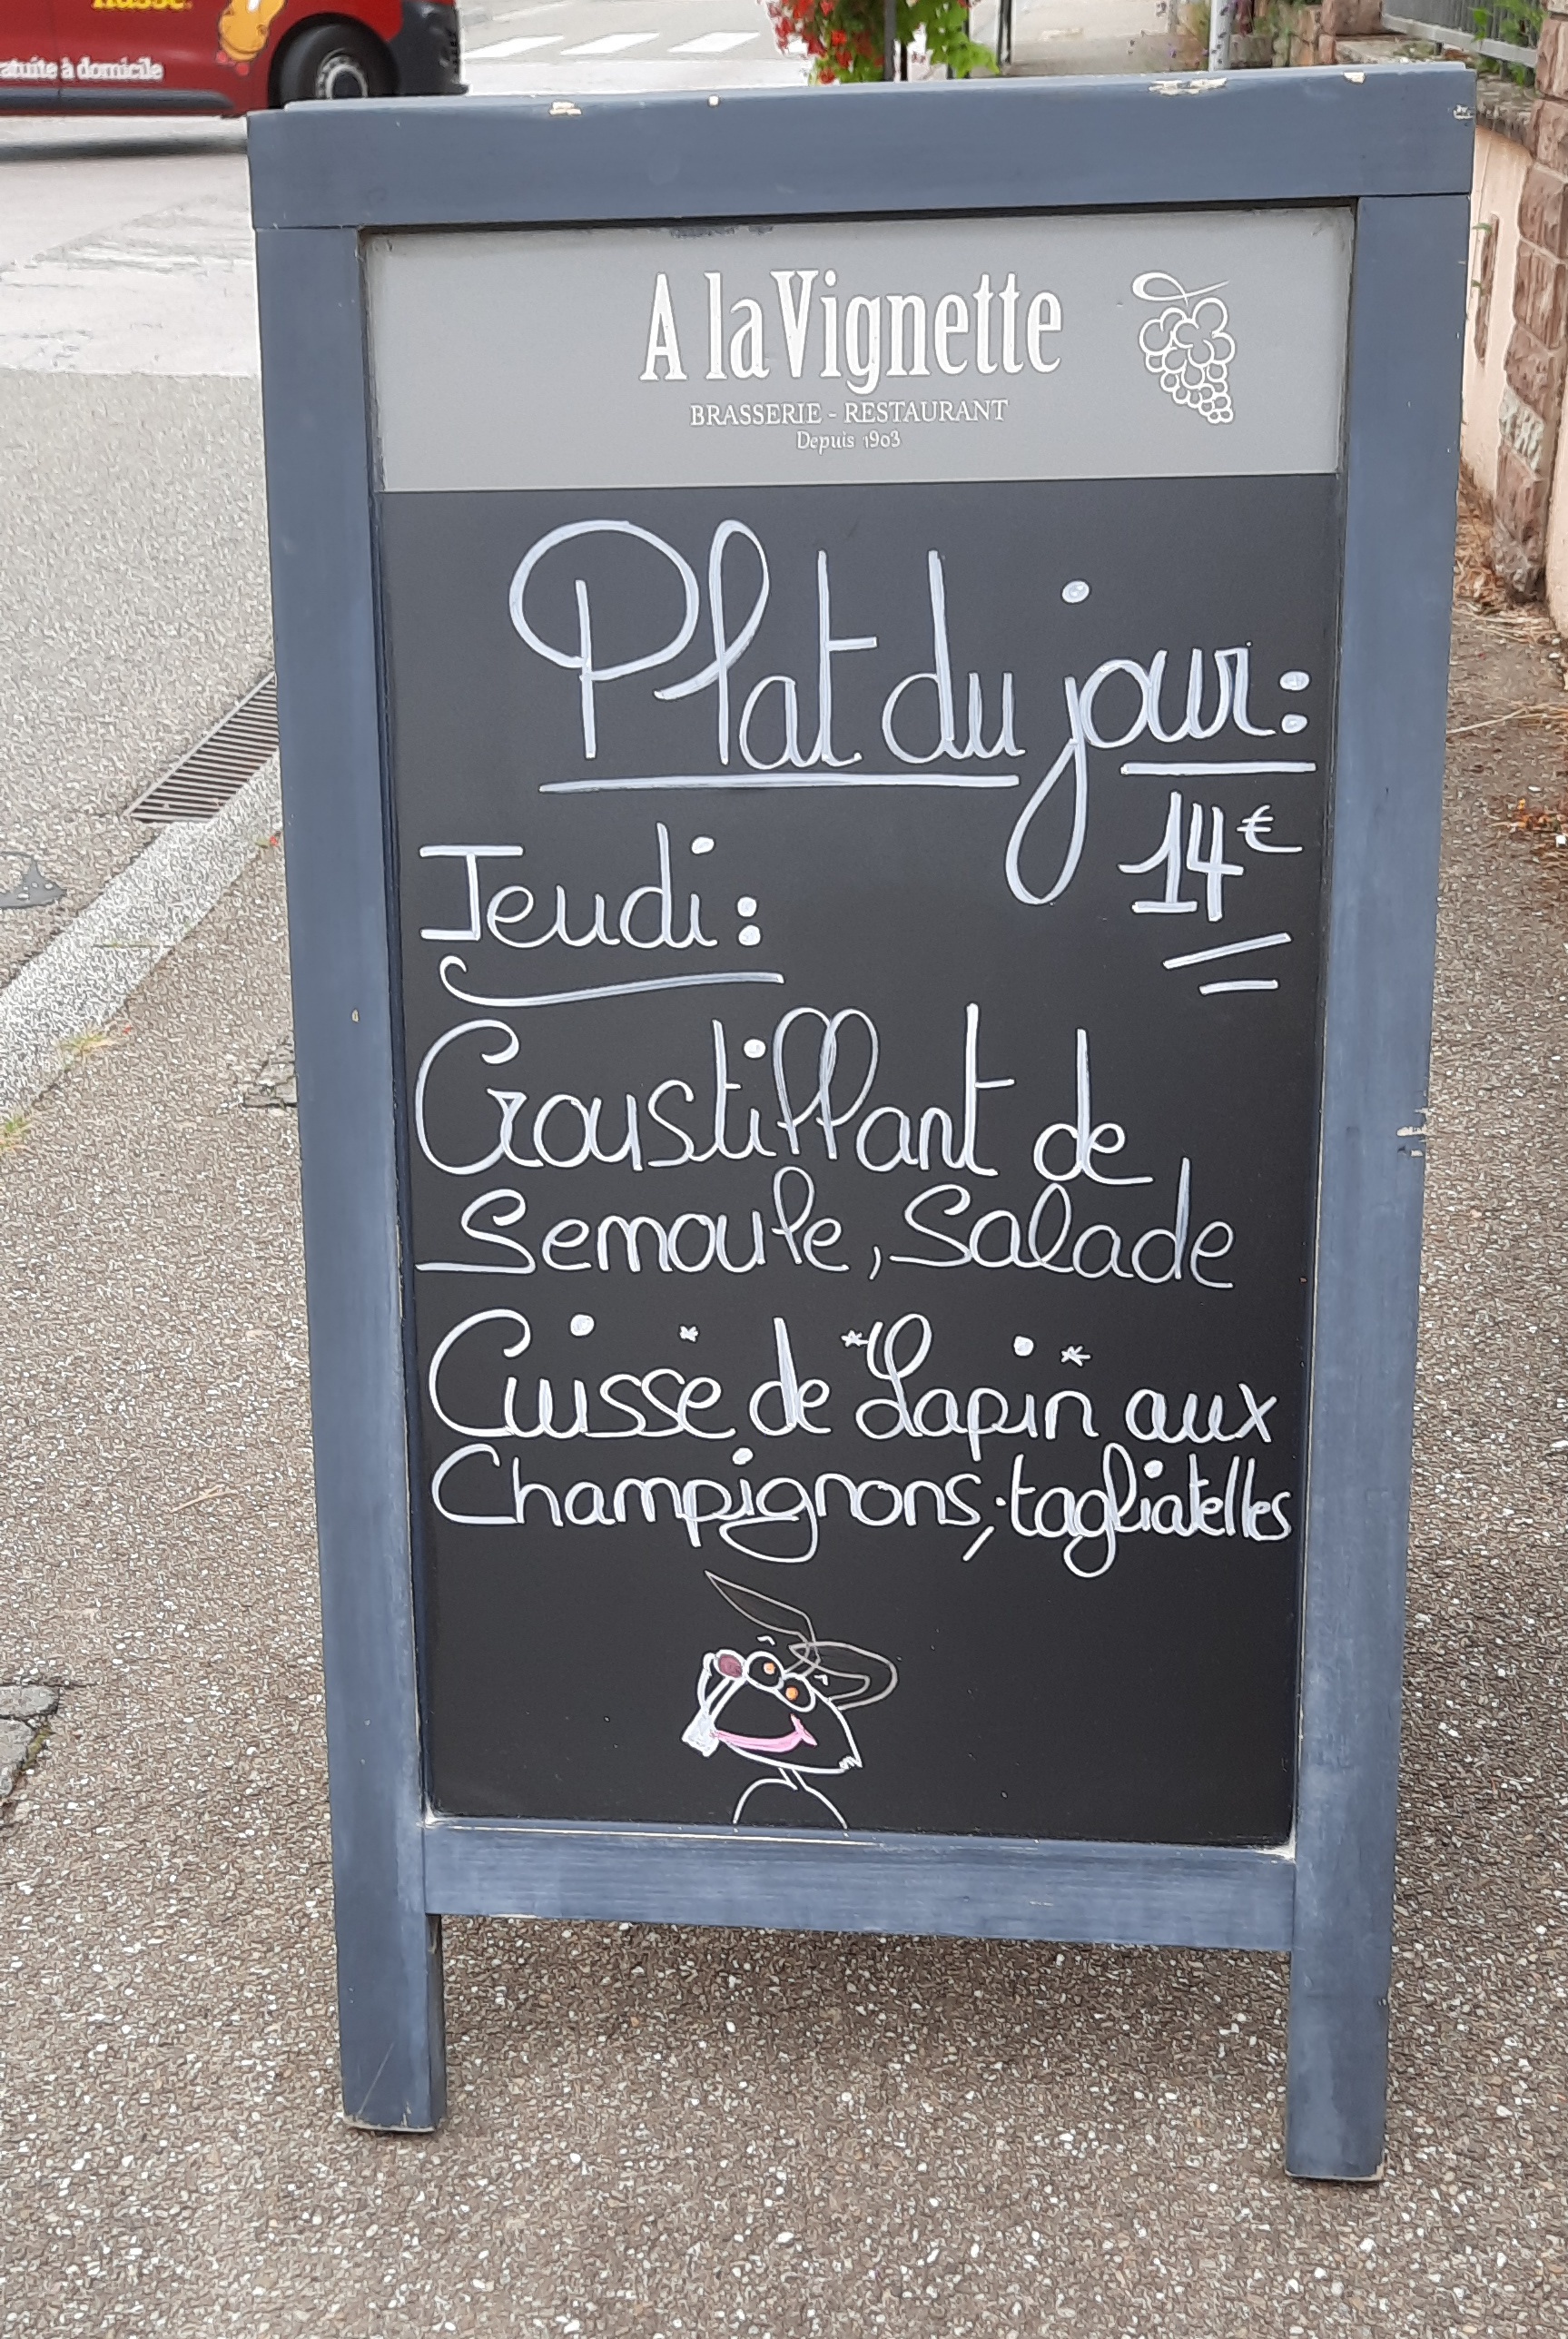 atuite à domicile
A la Vignette
BRASSERIE - RESTAURANT
Depuis 1903
Plat du jour:
14€
Jeudi:
Croustillant de
Semoule, Salade
Cuisse de Lapin aux
Champignons, tagliatelles